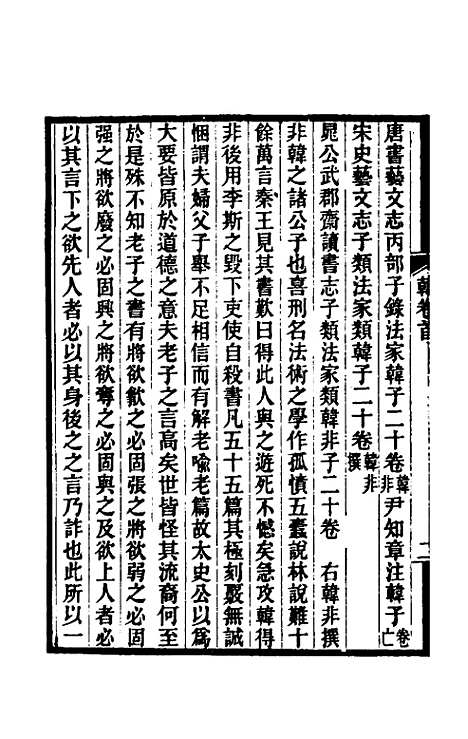 韓卷首
二
唐書藝文志丙部子錄法家韓子二十卷韓非尹知章注韓子卷亡
宋史藝文志子類法家類韓子二十卷韓非撰
晁公武郡齋讀書志子類法家類韓非子二十卷　右韓非撰
非韓之諸公子也喜刑名法術之學作孤憤五蠹說林說難十
餘萬言秦王見其書歎曰得此人與之遊死不憾矣急攻韓得
非後用李斯之毀下吏使自殺書凡五十五篇其極刻覈無誠
悃謂夫婦父子舉不足相信而有解老喩老篇故太史公以爲
大要皆原於道德之意夫老子之言高矣世皆怪其流裔何至
於是殊不知老子之書有將欲歙之必固張之將欲弱之必固
强之將欲廢之必固興之將欲奪之必固與之及欲上人者必
以其言下之欲先人者必以其身後之之言乃詐也此所以一